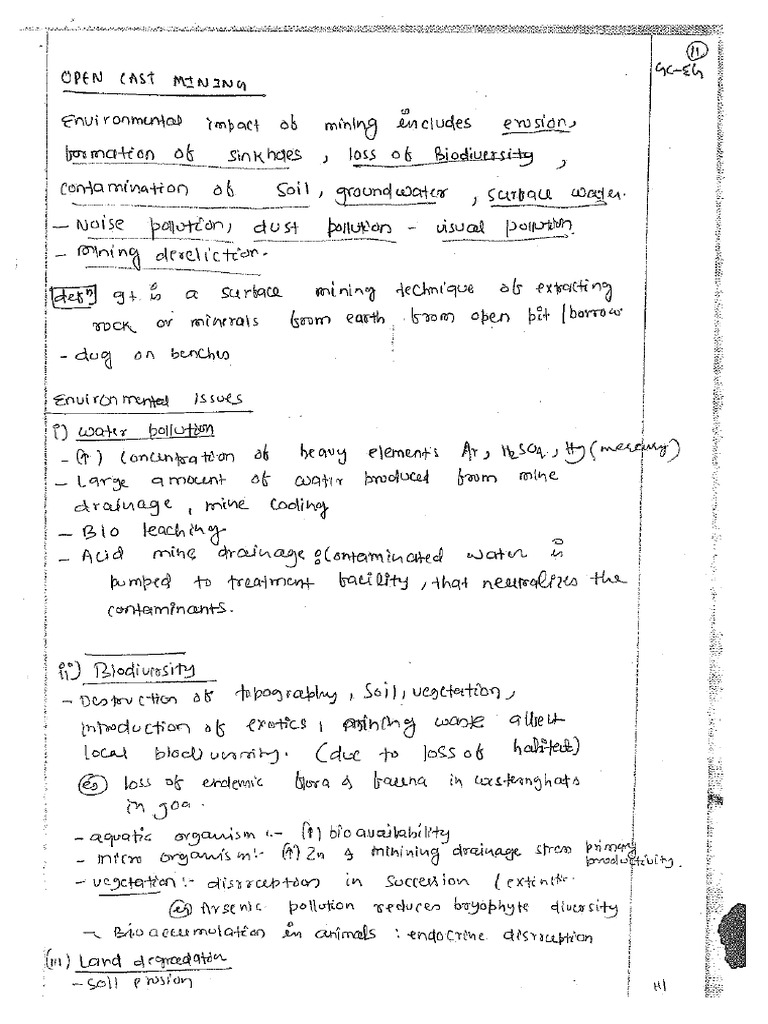 11
GC-EG
OPEN CAST MINING
Environmental impact of mining includes erosion,
formation of sinkholes, loss of Biodiversity,
contamination of soil, groundwater, surface water.
- Noise pollution, dust pollution - visual pollution
- Mining dereliction.
defn It is a surface mining technique of extracting
rock or minerals from earth from open pit / borrow
- dug on benches
Environmental issues
i) water pollution
- (↑) concentration of heavy elements Ar, H2SO4, Hg (mercury)
- Large amount of water produced from mine
drainage, mine cooling
- Bio leaching
- Acid mine drainage : Contaminated water is
pumped to treatment facility, that neutralizes the
contaminants.
ii) Biodiversity
- Destruction of topography, soil, vegetation,
introduction of exotics, mining waste affect
local biodiversity. (due to loss of habitat)
eg loss of endemic flora & fauna in western ghats
in goa.
- aquatic organism :- (↑) bio availability
- micro organism :- (↑) Zn & minining drainage stress primary
productivity.
- vegetation :- disrruption in succession / extinctn
eg Arsenic pollution reduces bryophyte diversity
- Bioaccumulation in animals : endocrine disruption
(iii) Land degradation
- soil erosion
11/